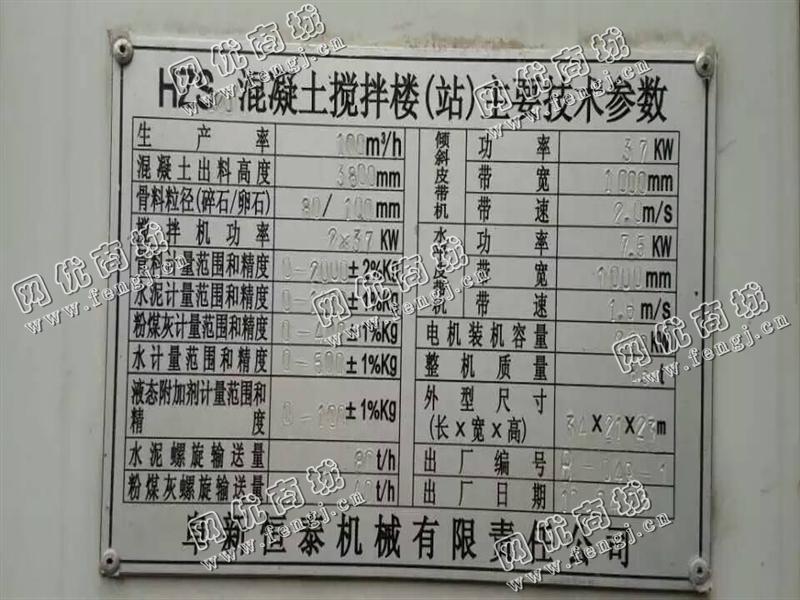 HZS 混凝土搅拌楼(站)主要技术参数
生产率 100m³/h
混凝土出料高度 3800mm
骨料粒径(碎石/卵石) 80/100mm
搅拌机功率 2×37 KW
骨料计量范围和精度 0-2000±2%Kg
水泥计量范围和精度 ±1%Kg
粉煤灰计量范围和精度 ±1%Kg
水计量范围和精度 0-500±1%Kg
液态附加剂计量范围和精度 0-100±1%Kg
水泥螺旋输送量 80t/h
粉煤灰螺旋输送量 t/h
倾斜皮带机
功率 37 KW
带宽 1000mm
带速 2.0m/s
水平皮带机
功率 7.5 KW
带宽 1000mm
带速 1.6m/s
电机装机容量 KW
整机质量 t
外型尺寸
(长×宽×高) 34×21×23m
出厂编号
出厂日期
阜新恒泰机械有限责任公司
网优商城
www.fengj.cn